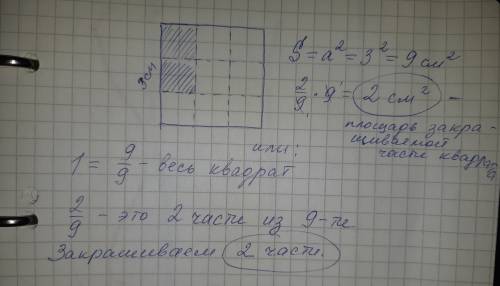 3см
S = a² = 3² = 9 см²
2/9 · 9 = 2 см² –
площадь закра-
шиваемой
части квадра
или:
1 = 9/9 – весь квадрат
2/9 – это 2 части из 9-ти
Закрашиваем 2 части.